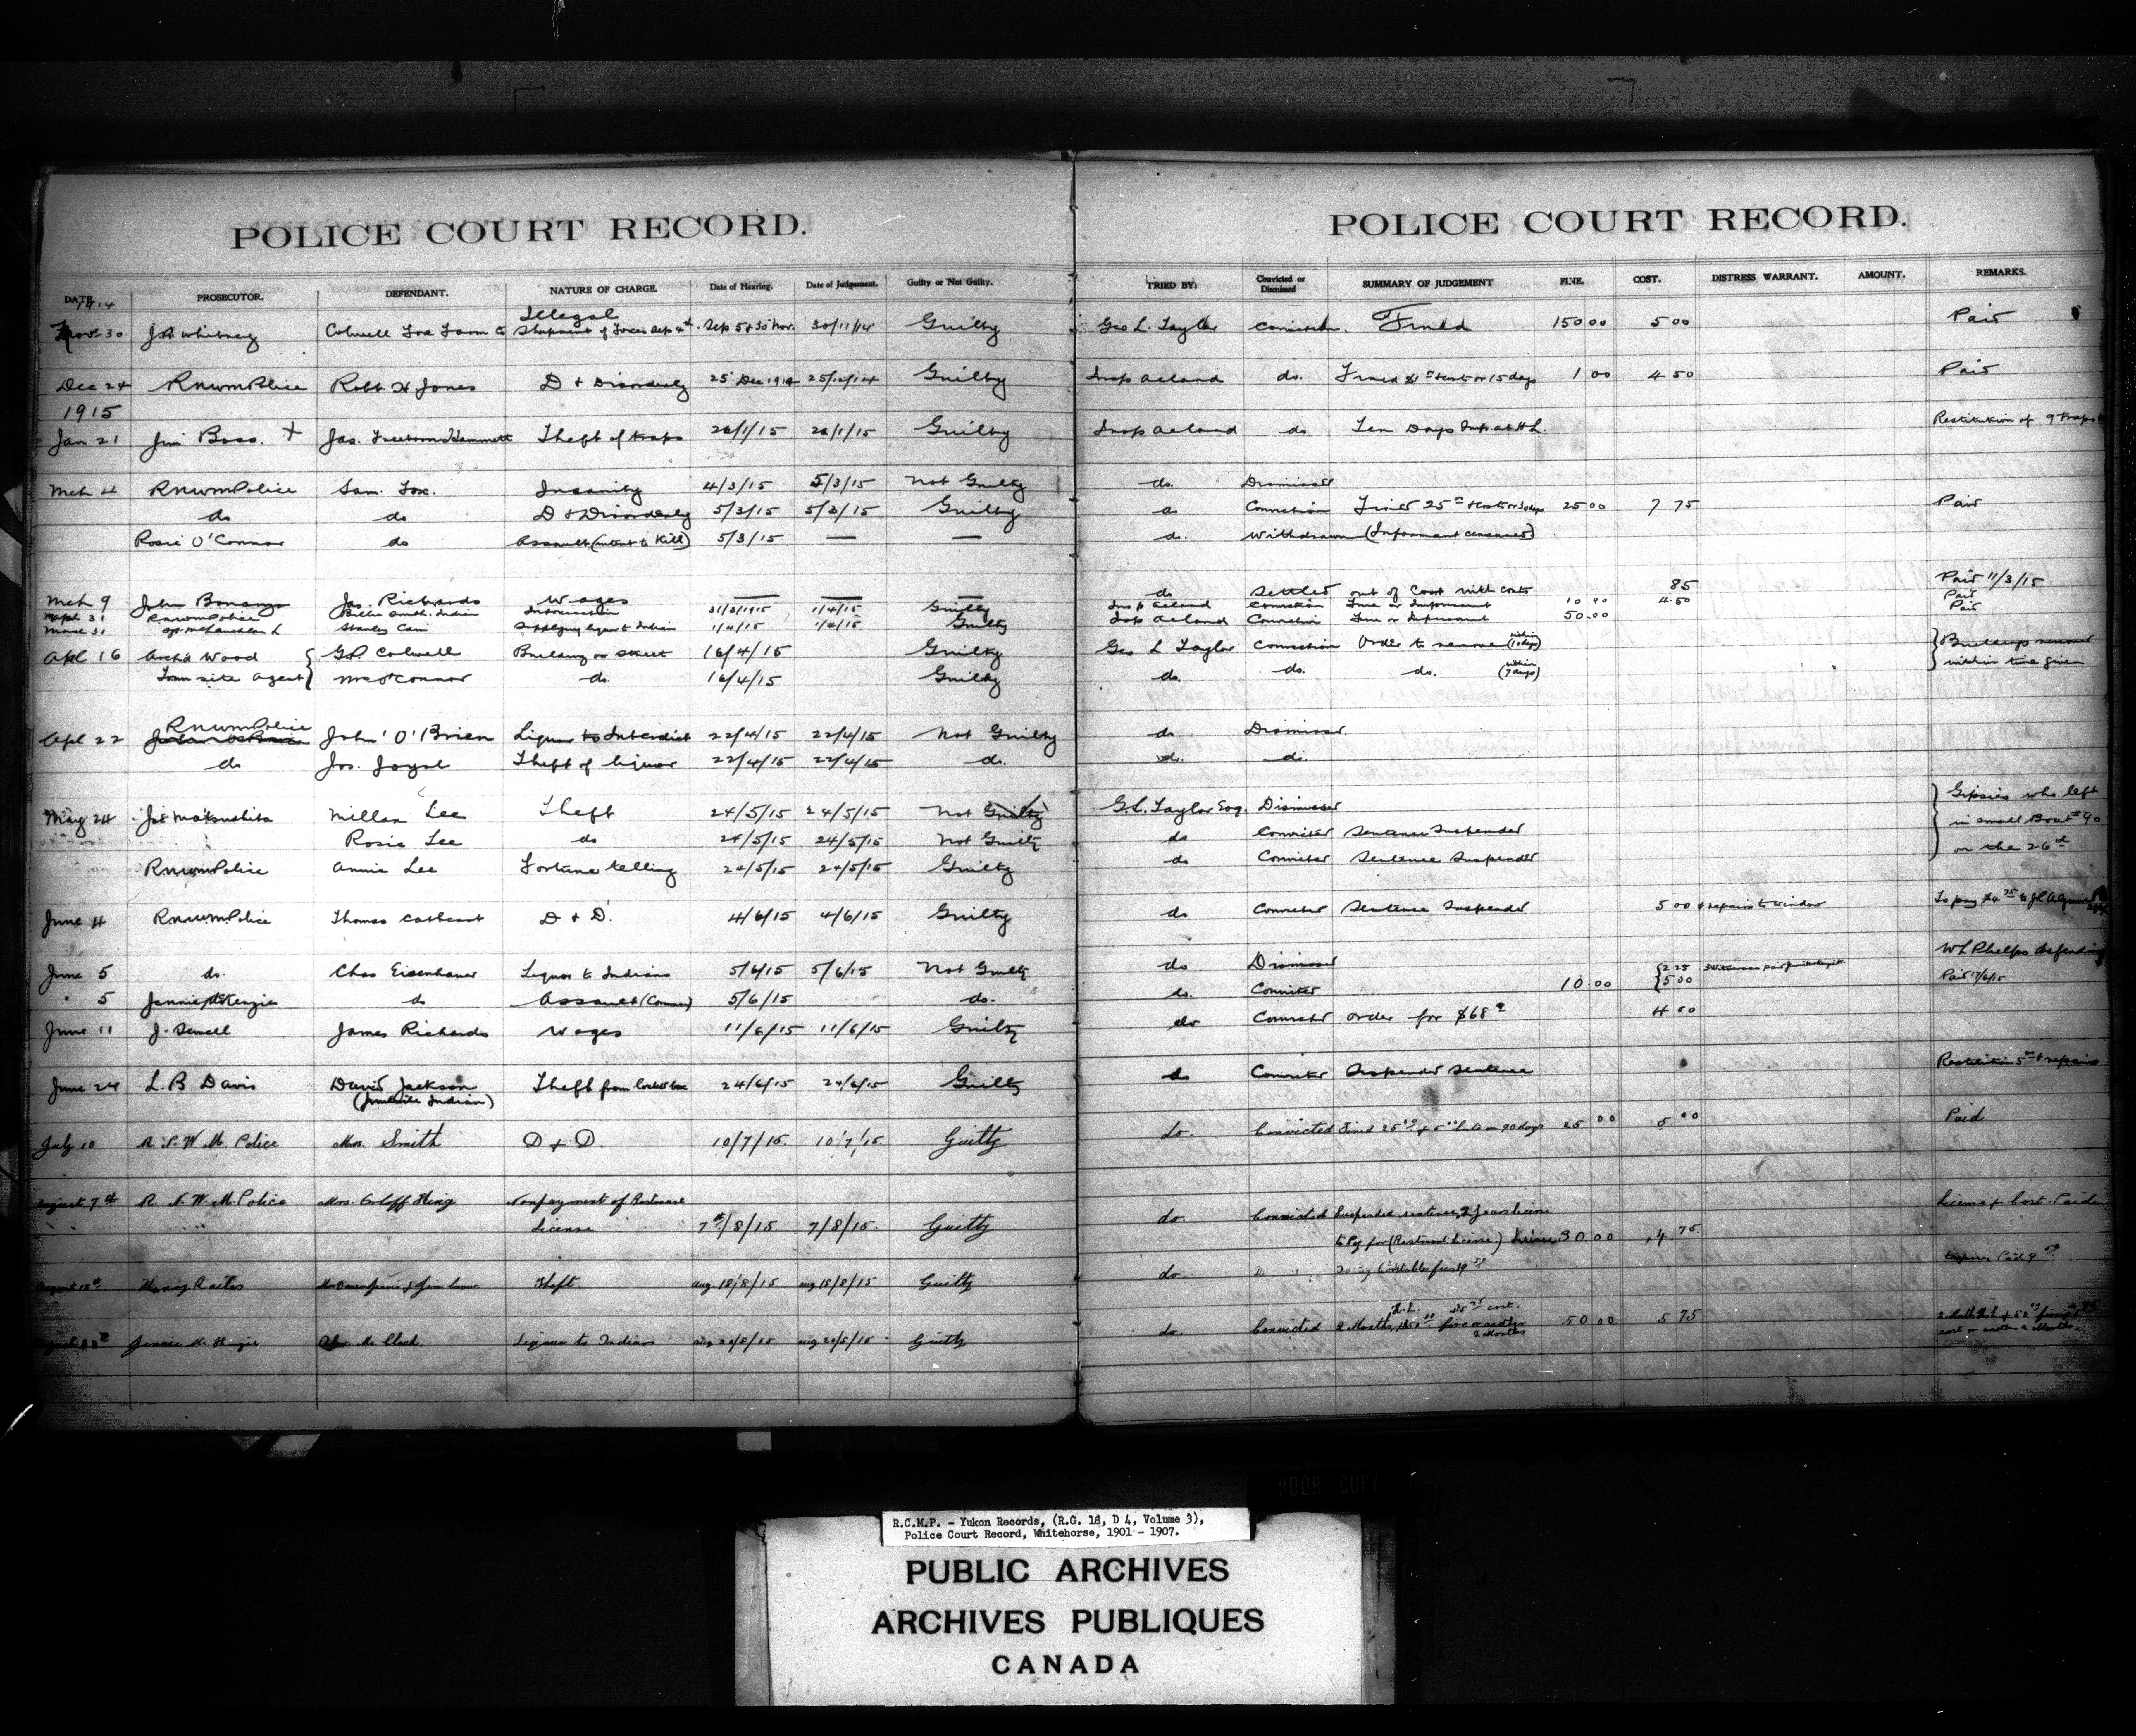 POLICE COURT RECORD.
DATE. PROSECUTOR. DEFENDANT. NATURE OF CHARGE. Date of Hearing. Date of Judgement. Guilty or Not Guilty.
1914
Nov 30 J.A. Whitney Colwell Fox Farm Co Illegal Shipment of Foxes Sep 4th Sep 5 & 30 Nov. 30/11/14 Guilty
Dec 24 RNWMPolice Robt. H Jones D & Disorderly 25 Dec 1914 25/12/14 Guilty
1915
Jan 21 Jim Boss. + Jas. Hammett Theft of traps 26/1/15 26/1/15 Guilty
Mch 4 RNWMPolice Sam. Fox. Insanity 4/3/15 5/3/15 Not Guilty
do do D & Disorderly 5/3/15 5/3/15 Guilty
Rosie O'Connor do Assault (intent to Kill) 5/3/15 — —
Mch 9 John Bonanza Jas. Richards Wages — — —
Mch 31 RNWMPolice Billie Smith. Indian Intoxication 31/3/1915 1/4/15 Guilty
March 31 Stanley Cain Supplying liquor to Indian 1/4/15 1/4/15 Guilty
Apl 16 Archd Wood { G.P. Colwell Building on Street 16/4/15 Guilty
Town site Agent } Mrs O'Connor do. 16/4/15 Guilty
RNWMPolice
Apl 22 John O'Brien Liquor to Interdict 22/4/15 22/4/15 Not Guilty
do Jos. Joyal Theft of liquor 22/4/15 22/4/15 do.
May 24 Jas Makushita Millan Lee Theft 24/5/15 24/5/15 Not Guilty
Rosie Lee do 24/5/15 24/5/15 Not Guilty
RNWMPolice Annie Lee Fortune telling 24/5/15 24/5/15 Guilty
June 4 RNWMPolice Thomas Cathcart D & D. 4/6/15 4/6/15 Guilty
June 5 do. Chas Eisenhauer Liquor to Indians 5/6/15 5/6/15 Not Guilty
" 5 Jennie McKenzie do Assault (Common) 5/6/15 do.
June 11 J. Sewell James Richards Wages 11/6/15 11/6/15 Guilty
June 24 L.B Davis David Jackson Theft from 24/6/15 24/6/15 Guilty
(Juvenile Indian)
July 10 R. N. W. M. Police Mrs. Smith D & D. 10/7/15. 10/7/15 Guilty
August 7th R. N. W. M. Police Mrs. King Nonpayment of Restaurant
License 7th/8/15 7/8/15. Guilty
August 18th Theft. Aug 18/8/15 Aug 18/8/15 Guilty
Jennie McKenzie Liquor to Indians Aug 20/8/15 Aug 20/8/15 Guilty
POLICE COURT RECORD.
TRIED BY: Convicted or Dismissed SUMMARY OF JUDGEMENT FINE. COST. DISTRESS WARRANT. AMOUNT. REMARKS.
Geo L. Taylor Conviction. Fined 150 00 5 00 Paid
Insp Acland do. Fined $1 00 & Costs or 15 days 1 00 4 50 Paid
Insp Acland do Ten Days Imp. at H L. Restitution of 9 Traps
do. Dismissed
do Conviction Fined 25 00 & costs or 30 days 25 00 7 75 Paid
do. Withdrawn (Informant)
do Settled out of Court with costs 85 Paid 11/3/15
Insp Acland Conviction Fine or Imprisonment 10 00 4.50 Paid
Insp Acland Conviction Fine or Imprisonment 50.00 Paid
Geo L Taylor Conviction Order to remove (within 10 days) } Buildings removed
do. do. do. (within 7 days) within time given
do Dismissed.
do. do.
G.L. Taylor Esq. Dismissed } Gipsies who left
do Convicted Sentence Suspended in small Boat #90
do Convicted Sentence Suspended on the 26th
do Convicted Sentence Suspended 5 00 & repairs to window
do Dismissed { 2 25 W L Phelps defending
do. Convicted 10.00 { 5 00 Paid 17/6/15
do Convicted Order for $68 4 00
do Convicted Suspended Sentence Restitution 5 00 & repairs
do. Convicted Fined 25 00 & 5 00 costs or 90 days 25 00 5 00 Paid
do. Convicted Suspended sentence License & Cost. Paid
to Pay for (Restaurant License) 30.00 4.75.
do.
do. Convicted 2 Months, H.L. 50 00 fine or another 2 Months 50 00 5 75
POOR COPY
R.C.M.P. - Yukon Records, (R.G. 18, D 4, Volume 3),
Police Court Record, Whitehorse, 1901 - 1907.
PUBLIC ARCHIVES
ARCHIVES PUBLIQUES
CANADA